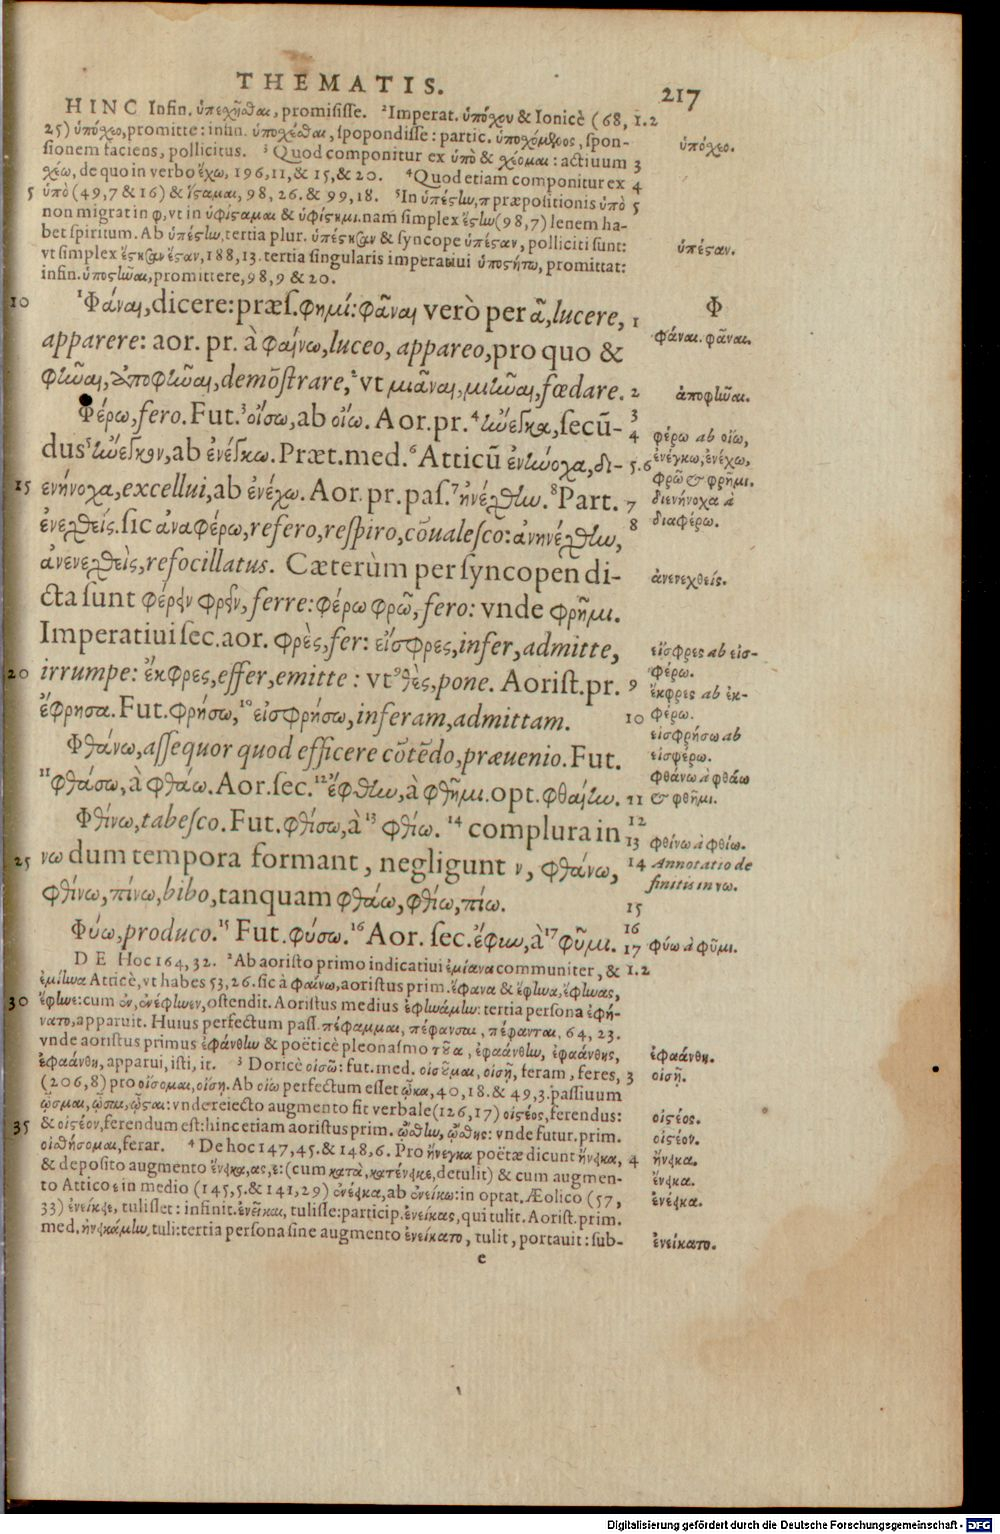 THEMATIS. 217
HINC Infin. ὑπεχῆσθαι, promisisse. ²Imperat. ὑπόχου & Ionicè (68, 1.2
25) ὑπόχεο, promitte: infin. ὑποχέσθαι, spopondisse: partic. ὑποχόμενος, spon- ὑπόχεο.
sionem faciens, pollicitus. ³Quod componitur ex ὑπὸ & χέομαι: actiuum 3
χέω, de quo in verbo ἔχω, 196, 11, & 15, & 20. ⁴Quod etiam componitur ex 4
5 ὑπὸ (49, 7 & 16) & ἵσταμαι, 98, 26. & 99, 18. ⁵In ὑπέστην, π præpositionis ὑπὸ 5
non migrat in φ, vt in ὑφίσταμαι & ὑφίστημι. nam simplex ἔστην (98, 7) lenem ha-
bet spiritum. Ab ὑπέστην, tertia plur. ὑπέστησαν & syncope ὑπέσταν, polliciti sunt: ὑπέσταν.
vt simplex ἔστησαν ἔσταν, 188, 13. tertia singularis imperatiui ὑποστήτω, promittat:
infin. ὑποστῆναι, promittere, 98, 9 & 20.
10 ¹Φάναι, dicere: præs. φημί: φᾶναι verò per ᾶ, lucere, 1 Φ
apparere: aor. pr. à φαίνω, luceo, appareo, pro quo & φάναι. φᾶναι.
φῆναι, ἀποφῆναι, demōstrare, ²vt μιᾶναι, μιῆναι, fœdare. 2 ἀποφῆναι.
Φέρω, fero. Fut. ³οἴσω, ab οἴω. Aor. pr. ⁴ἤνεγκα, secū- 3 4 φέρω ab οἴω,
dus ⁵ἤνεγκον, ab ἐνέγκω. Præt. med. ⁶Atticū ἐνήνοχα, δι- 5.6 ἐνέγκω, ἐνέχω,
15 ενήνοχα, excellui, ab ἐνέχω. Aor. pr. pas. ⁷ἠνέχθην. ⁸Part. 7 φρῶ & φρῆμι. διενήνοχα à
ἐνεχθείς. sic ἀναφέρω, refero, respiro, cōualesco: ἀνηνέχθην, 8 διαφέρω.
ἀνενεχθεὶς, refocillatus. Cæterùm per syncopen di- ἀνενεχθείς.
cta sunt φέρειν φρεῖν, ferre: φέρω φρῶ, fero: vnde φρῆμι.
Imperatiui sec. aor. φρὲς, fer: εἴσφρες, infer, admitte, εἴσφρες ab εἰσ-
20 irrumpe: ἔκφρες, effer, emitte: vt ⁹θὲς, pone. Aorist. pr. 9 φέρω. ἔκφρες ab ἐκ-
ἔφρησα. Fut. φρήσω, ¹⁰εἰσφρήσω, inferam, admittam. 10 φέρω.
εἰσφρήσω ab
Φθάνω, assequor quod efficere cōtēdo, præuenio. Fut. εἰσφέρω.
¹¹φθάσω, à φθάω. Aor. sec. ¹²ἔφθην, à φθῆμι. opt. φθαίην. 11 φθάνω à φθάω & φθῆμι.
Φθίνω, tabesco. Fut. φθίσω, à ¹³φθίω. ¹⁴complura in 12 13 φθίνω à φθίω.
25 νω dum tempora formant, negligunt ν, φθάνω, 14 Annotatio de
φθίνω, πίνω, bibo, tanquam φθάω, φθίω, πίω. finitis in νω.
15
Φύω, produco. ¹⁵Fut. φύσω. ¹⁶Aor. sec. ἔφυν, à ¹⁷φῦμι. 16 17 φύω à φῦμι.
DE Hoc 164, 32. ²Ab aoristo primo indicatiui ἐμίανα communiter, & 1.2
ἐμίηνα Atticè, vt habes 53, 26. sic à φαίνω, aoristus prim. ἔφανα & ἔφηνα, ἔφηνας,
30 ἔφηνε: cum ἀν, ἀνέφηνεν, ostendit. Aoristus medius ἐφηνάμην: tertia persona ἐφή-
νατο, apparuit. Huius perfectum pass. πέφαμμαι, πέφανσαι, πέφανται, 64, 23.
vnde aoristus primus ἐφάνθην & poëticè pleonasmo τοῦ α, ἐφαάνθην, ἐφαάνθης,
ἐφαάνθη, apparui, isti, it. ³Doricè οἰσῶ: fut. med. οἰσοῦμαι, οἰσῆ, feram, feres, 3 ἐφαάνθη. οἰσῆ.
(206, 8) pro οἴσομαι, οἴση. Ab οἴω perfectum esset ᾦκα, 40, 18. & 49, 3. passiuum
ᾦσμαι, ᾦσαι, ᾦσται: vnde reiecto augmento fit verbale (126, 17) οἰστέος, ferendus: οἰστέος.
35 & οἰστέον, ferendum est: hinc etiam aoristus prim. ᾤσθην, ᾤσθης: vnde futur. prim. οἰστέον.
οἰσθήσομαι, ferar. ⁴De hoc 147, 45. & 148, 6. Pro ἤνεγκα poëtæ dicunt ἤνεικα, 4 ἤνεικα.
& deposito augmento ἔνεικα, ας, ε: (cum κατὰ, κατένεικε, detulit) & cum augmen- ἔνεικα.
to Attico ε in medio (145, 5. & 141, 29) ἀνέεικα, ab ἀνείκω: in optat. Æolico (57, ἐνέεικα.
33) ἐνείκειε, tulisset: infinit. ἐνεῖκαι, tulisse: particip. ἐνείκας, qui tulit. Aorist. prim.
med. ἠνεικάμην, tuli: tertia persona sine augmento ἐνείκατο, tulit, portauit: sub- ἐνείκατο.
e
Digitalisierung gefördert durch die Deutsche Forschungsgemeinschaft - DFG